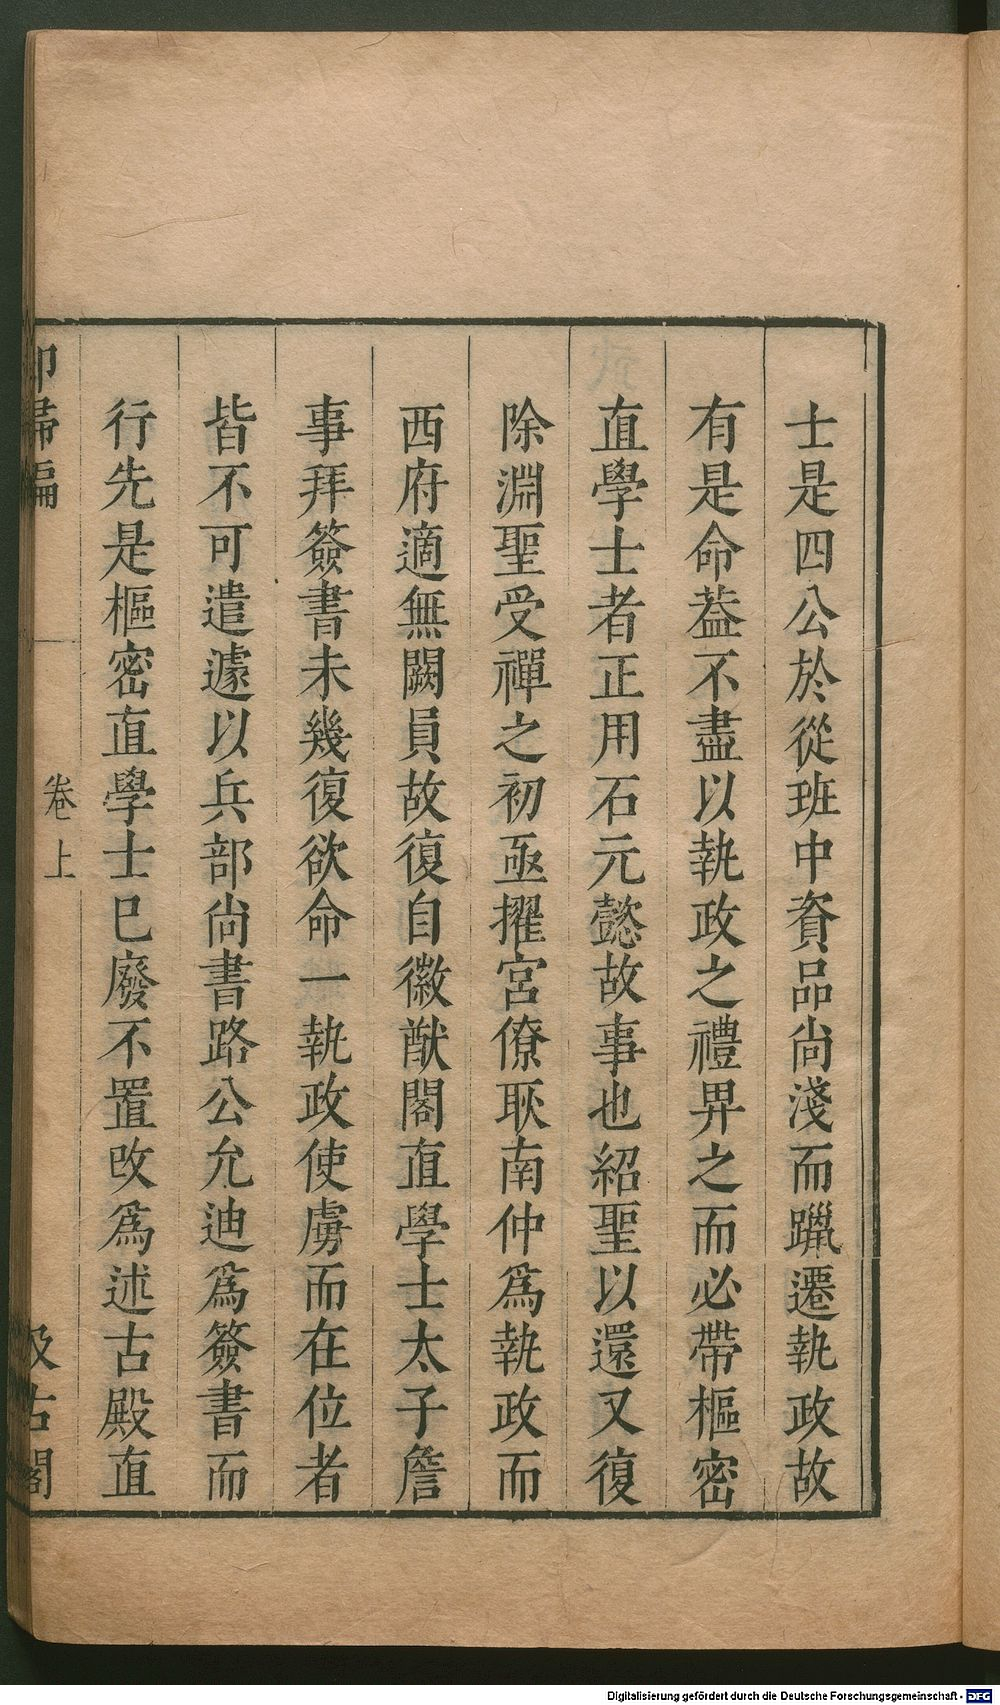 士是四公於從班中資品尙淺而躐遷執政故
有是命葢不盡以執政之禮畀之而必帶樞密
直學士者正用石元懿故事也紹聖以還又復
除淵聖受禪之初亟擢宮僚耿南仲爲執政而
西府適無闕員故復自徽猷閣直學士太子詹
事拜簽書未幾復欲命一執政使虜而在位者
皆不可遣遽以兵部尙書路公允迪爲簽書而
行先是樞密直學士巳廢不置改爲述古殿直
卻掃編
卷上
汲古閣
Digitalisierung gefördert durch die Deutsche Forschungsgemeinschaft - DFG